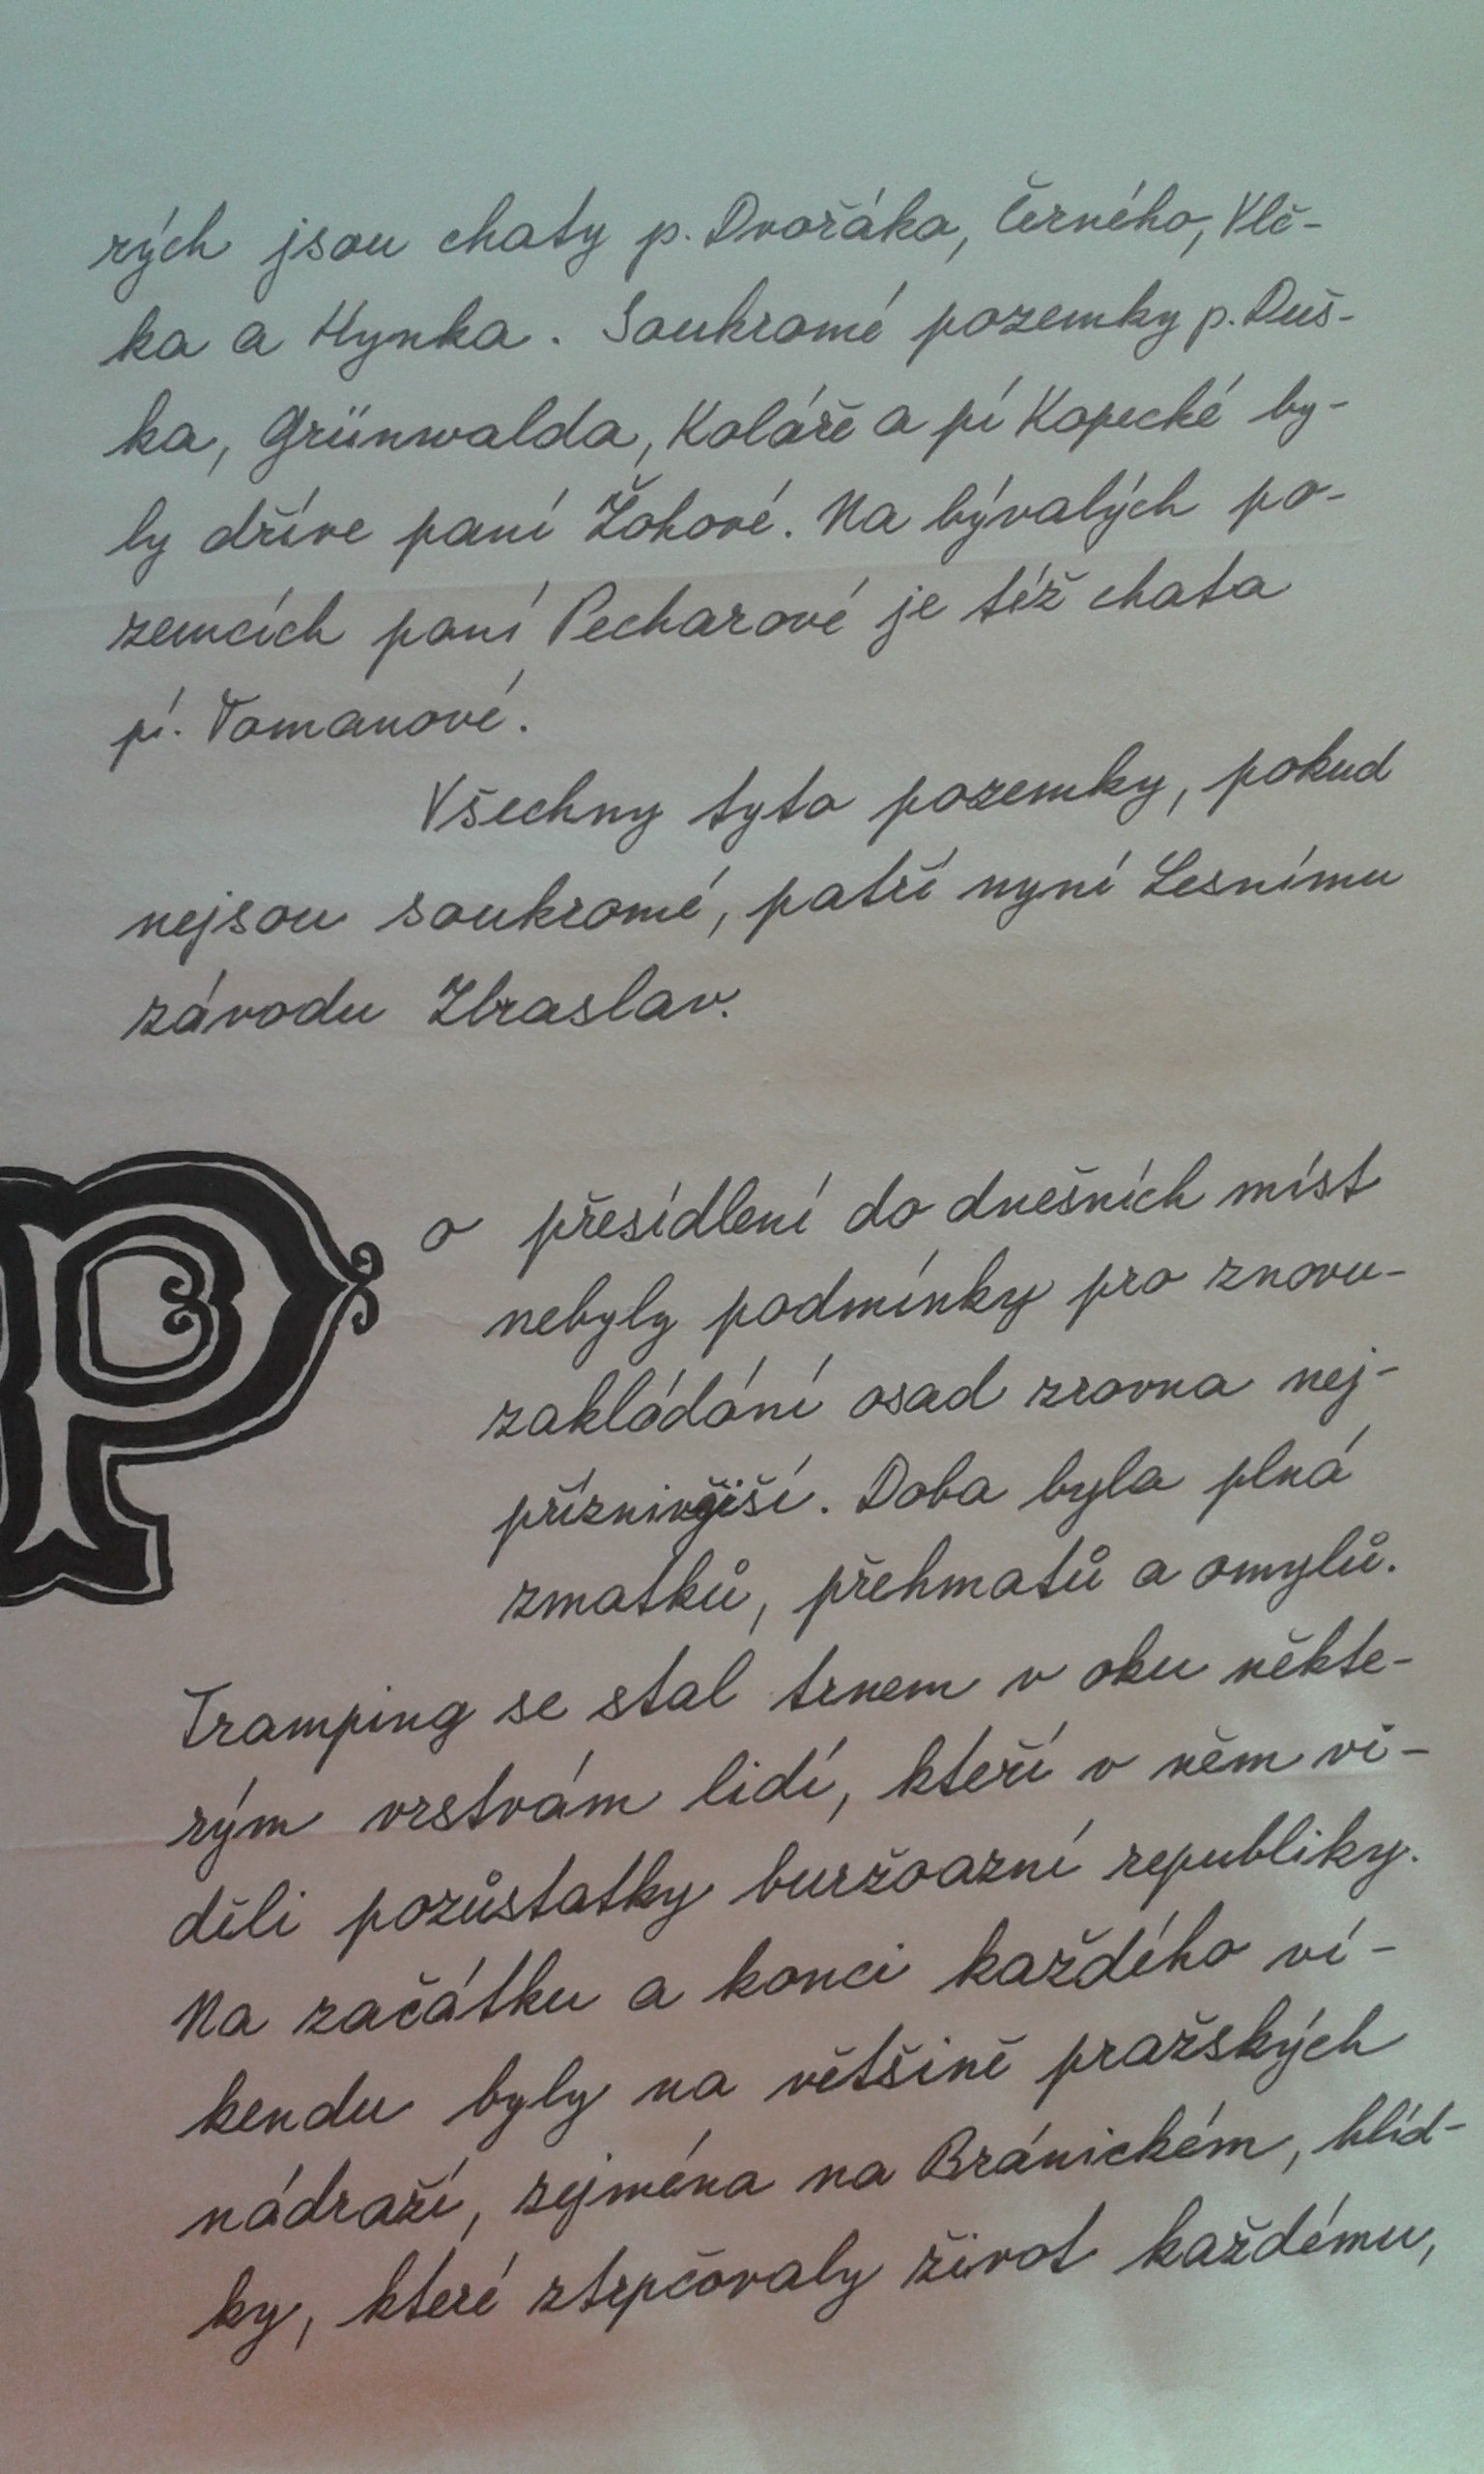 rých jsou chaty p. Dvořáka, Černého, Vlč-
ka a Hynka. Soukromé pozemky p. Duš-
ka, Grünwalda, Koláře a pí Kopecké by-
ly dříve paní Žohové. Na bývalých po-
zemcích paní Pecharové je též chata
pí. Tomanové.
Všechny tyto pozemky, pokud
nejsou soukromé, patří nyní Lesnímu
závodu Zbraslav.
Po přesídlení do dnešních míst
nebyly podmínky pro znovu-
zakládání osad zrovna nej-
příznivější. Doba byla plná
zmatků, přehmatů a omylů.
Tramping se stal trnem v oku někte-
rým vrstvám lidí, kteří v něm vi-
děli pozůstatky buržoazní republiky.
Na začátku a konci každého ví-
kendu byly na většině pražských
nádraží, zejména na Bránickém, hlíd-
ky, které ztrpčovaly život každému,